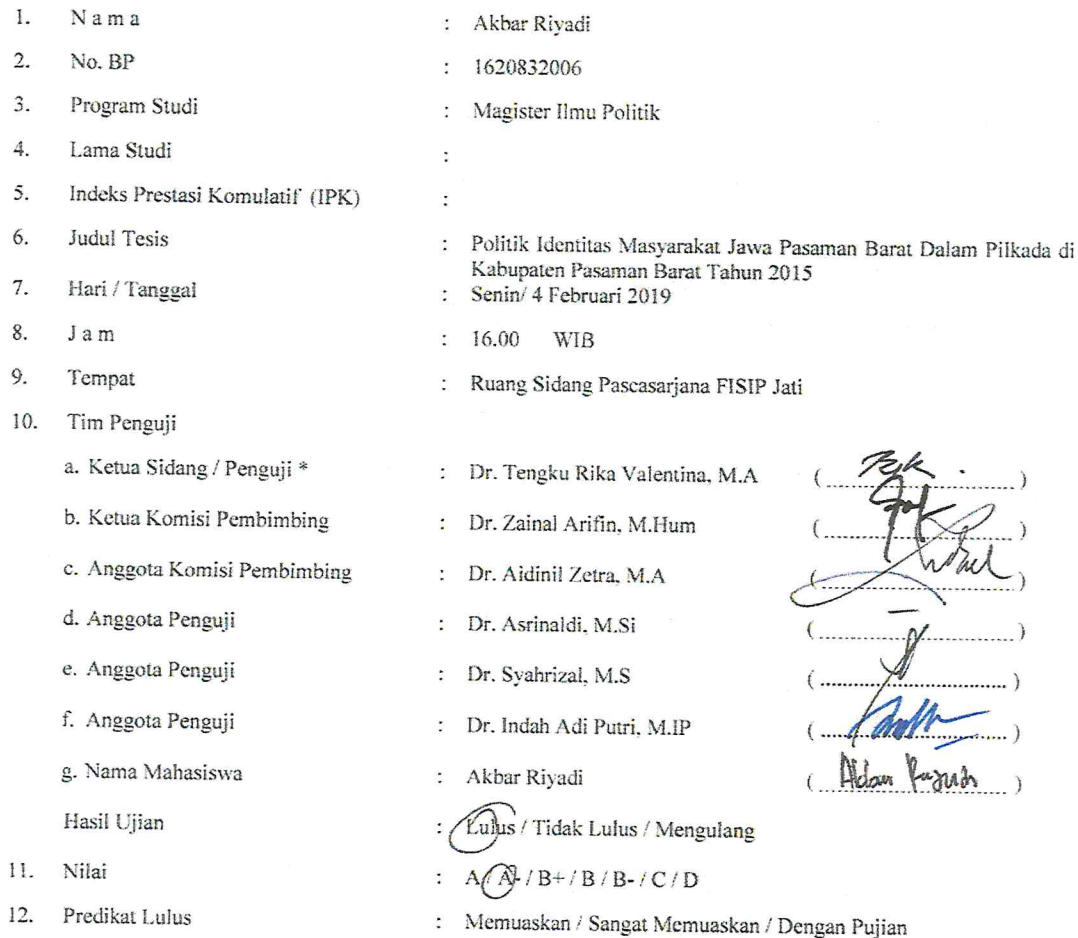 1. N a m a : Akbar Riyadi
2. No. BP : 1620832006
3. Program Studi : Magister Ilmu Politik
4. Lama Studi :
5. Indeks Prestasi Komulatif (IPK) :
6. Judul Tesis : Politik Identitas Masyarakat Jawa Pasaman Barat Dalam Pilkada di
Kabupaten Pasaman Barat Tahun 2015
7. Hari / Tanggal : Senin/ 4 Februari 2019
8. J a m : 16.00 WIB
9. Tempat : Ruang Sidang Pascasarjana FISIP Jati
10. Tim Penguji
a. Ketua Sidang / Penguji * : Dr. Tengku Rika Valentina, M.A (....................)
b. Ketua Komisi Pembimbing : Dr. Zainal Arifin, M.Hum (....................)
c. Anggota Komisi Pembimbing : Dr. Aidinil Zetra, M.A (....................)
d. Anggota Penguji : Dr. Asrinaldi, M.Si (....................)
e. Anggota Penguji : Dr. Syahrizal, M.S (....................)
f. Anggota Penguji : Dr. Indah Adi Putri, M.IP (....................)
g. Nama Mahasiswa : Akbar Riyadi (....................)
Hasil Ujian : Lulus / Tidak Lulus / Mengulang
11. Nilai : A / A- / B+ / B / B- / C / D
12. Predikat Lulus : Memuaskan / Sangat Memuaskan / Dengan Pujian